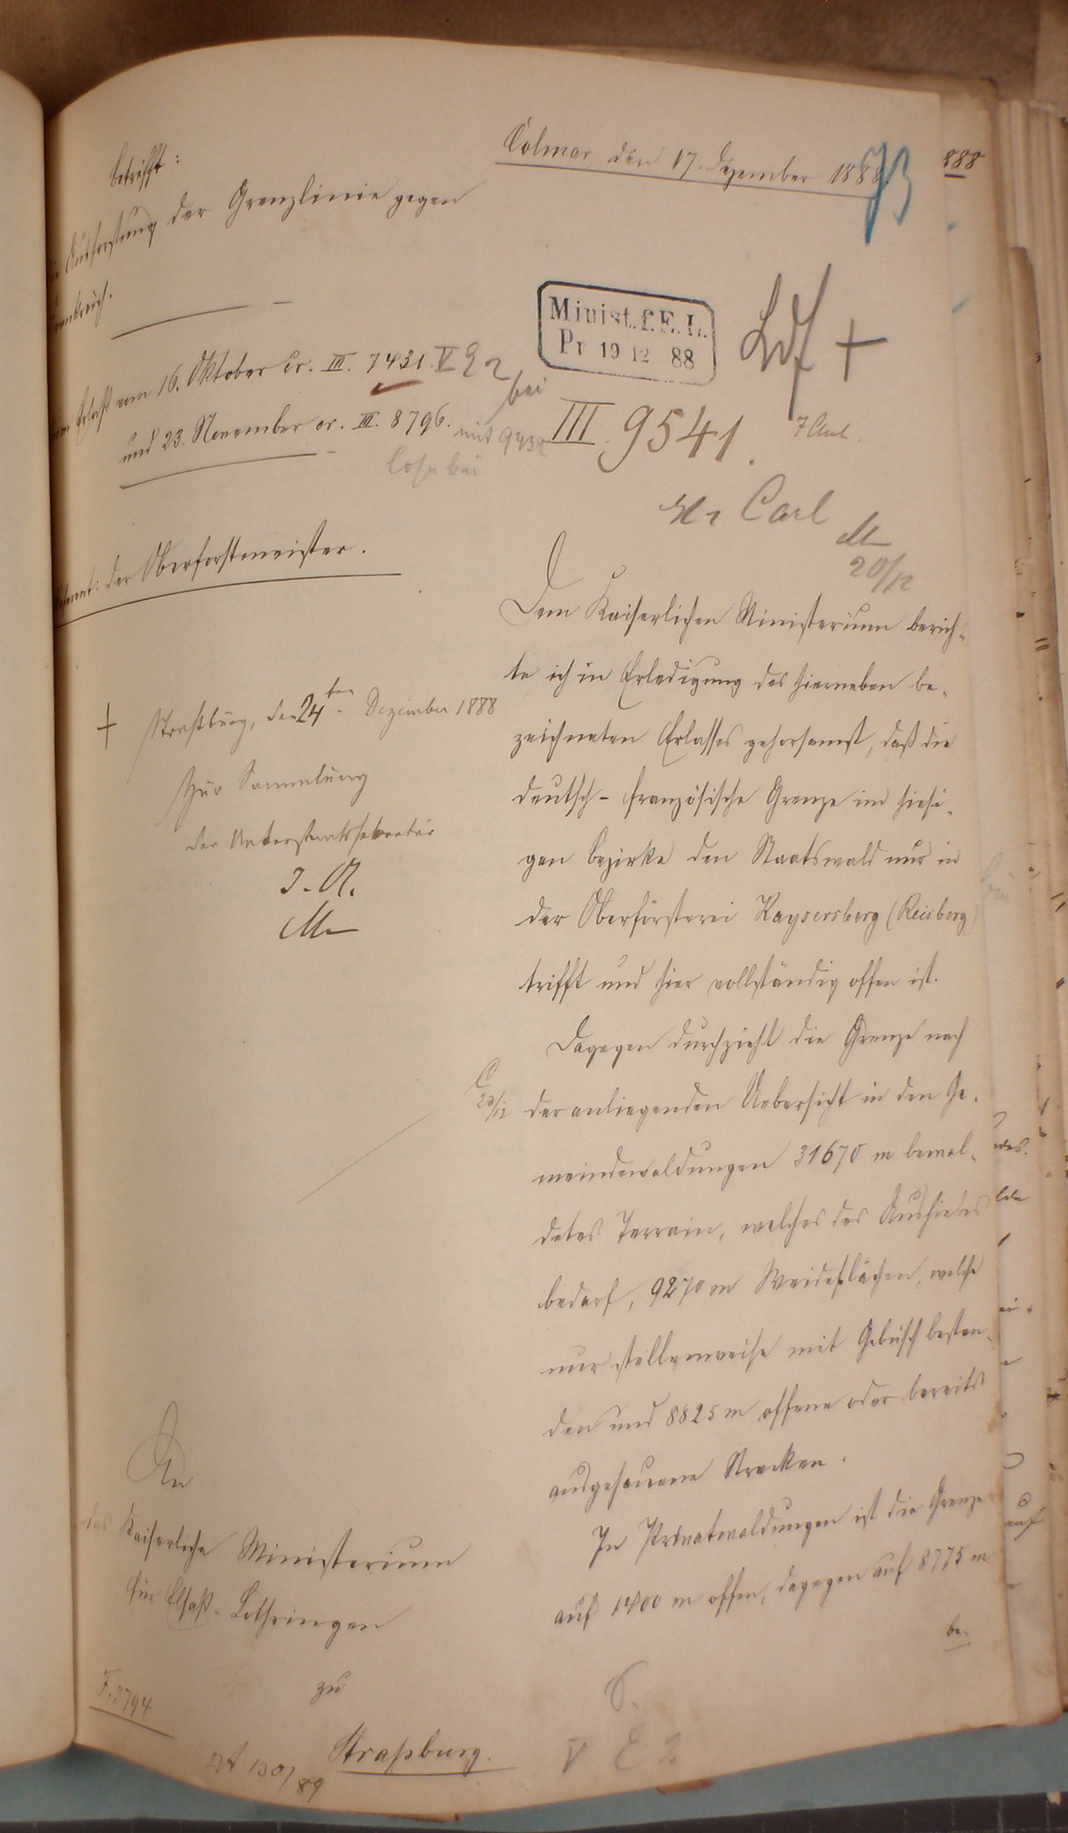 Colmar den 17. Dezember 1888
73
888
Betrifft:
Aushauung der Grenzlinie gegen
Frankreich.
Minist. f. E. L.
Pr 19 12 88
Erlaß vom 16. Oktober cr. III. 7431. V E 2
bei
und 23. November cr. III. 8796.
mit
lose bei
III. 9541.
7 Anl.
Hr Carl
M
20/12
der Oberforstmeister.
Dem Kaiserlichen Ministerium berich-
te ich in Erledigung des hierneben be-
zeichneten Erlasses gehorsamst, daß die
deutsch-französische Grenze im hiesi-
gen Bezirke den Staatswald nur in
der Oberförsterei Kaysersberg (Reisberg)
trifft und hier vollständig offen ist.
Dagegen durchzieht die Grenze nach
der anliegenden Uebersicht in den Ge-
meindewaldungen 31670 m bewal-
detes Terrain, welches des Aushiebes
bedarf, 9270 m Weideflächen, welche
nur stellenweise mit Gebüsch bestan-
den und 8825 m offene oder bereits
ausgehauene Strecken.
In Privatwaldungen ist die Grenze
auf 1400 m offen, dagegen auf 8775 m
be-
+ Straßburg, den 24ten Dezember 1888
Zur Sammlung
Der Unterstaatssekretär
I. A.
M
C
22/12
An
das Kaiserliche Ministerium
für Elsaß-Lothringen
zu
Straßburg.
F. 3794
V E 2